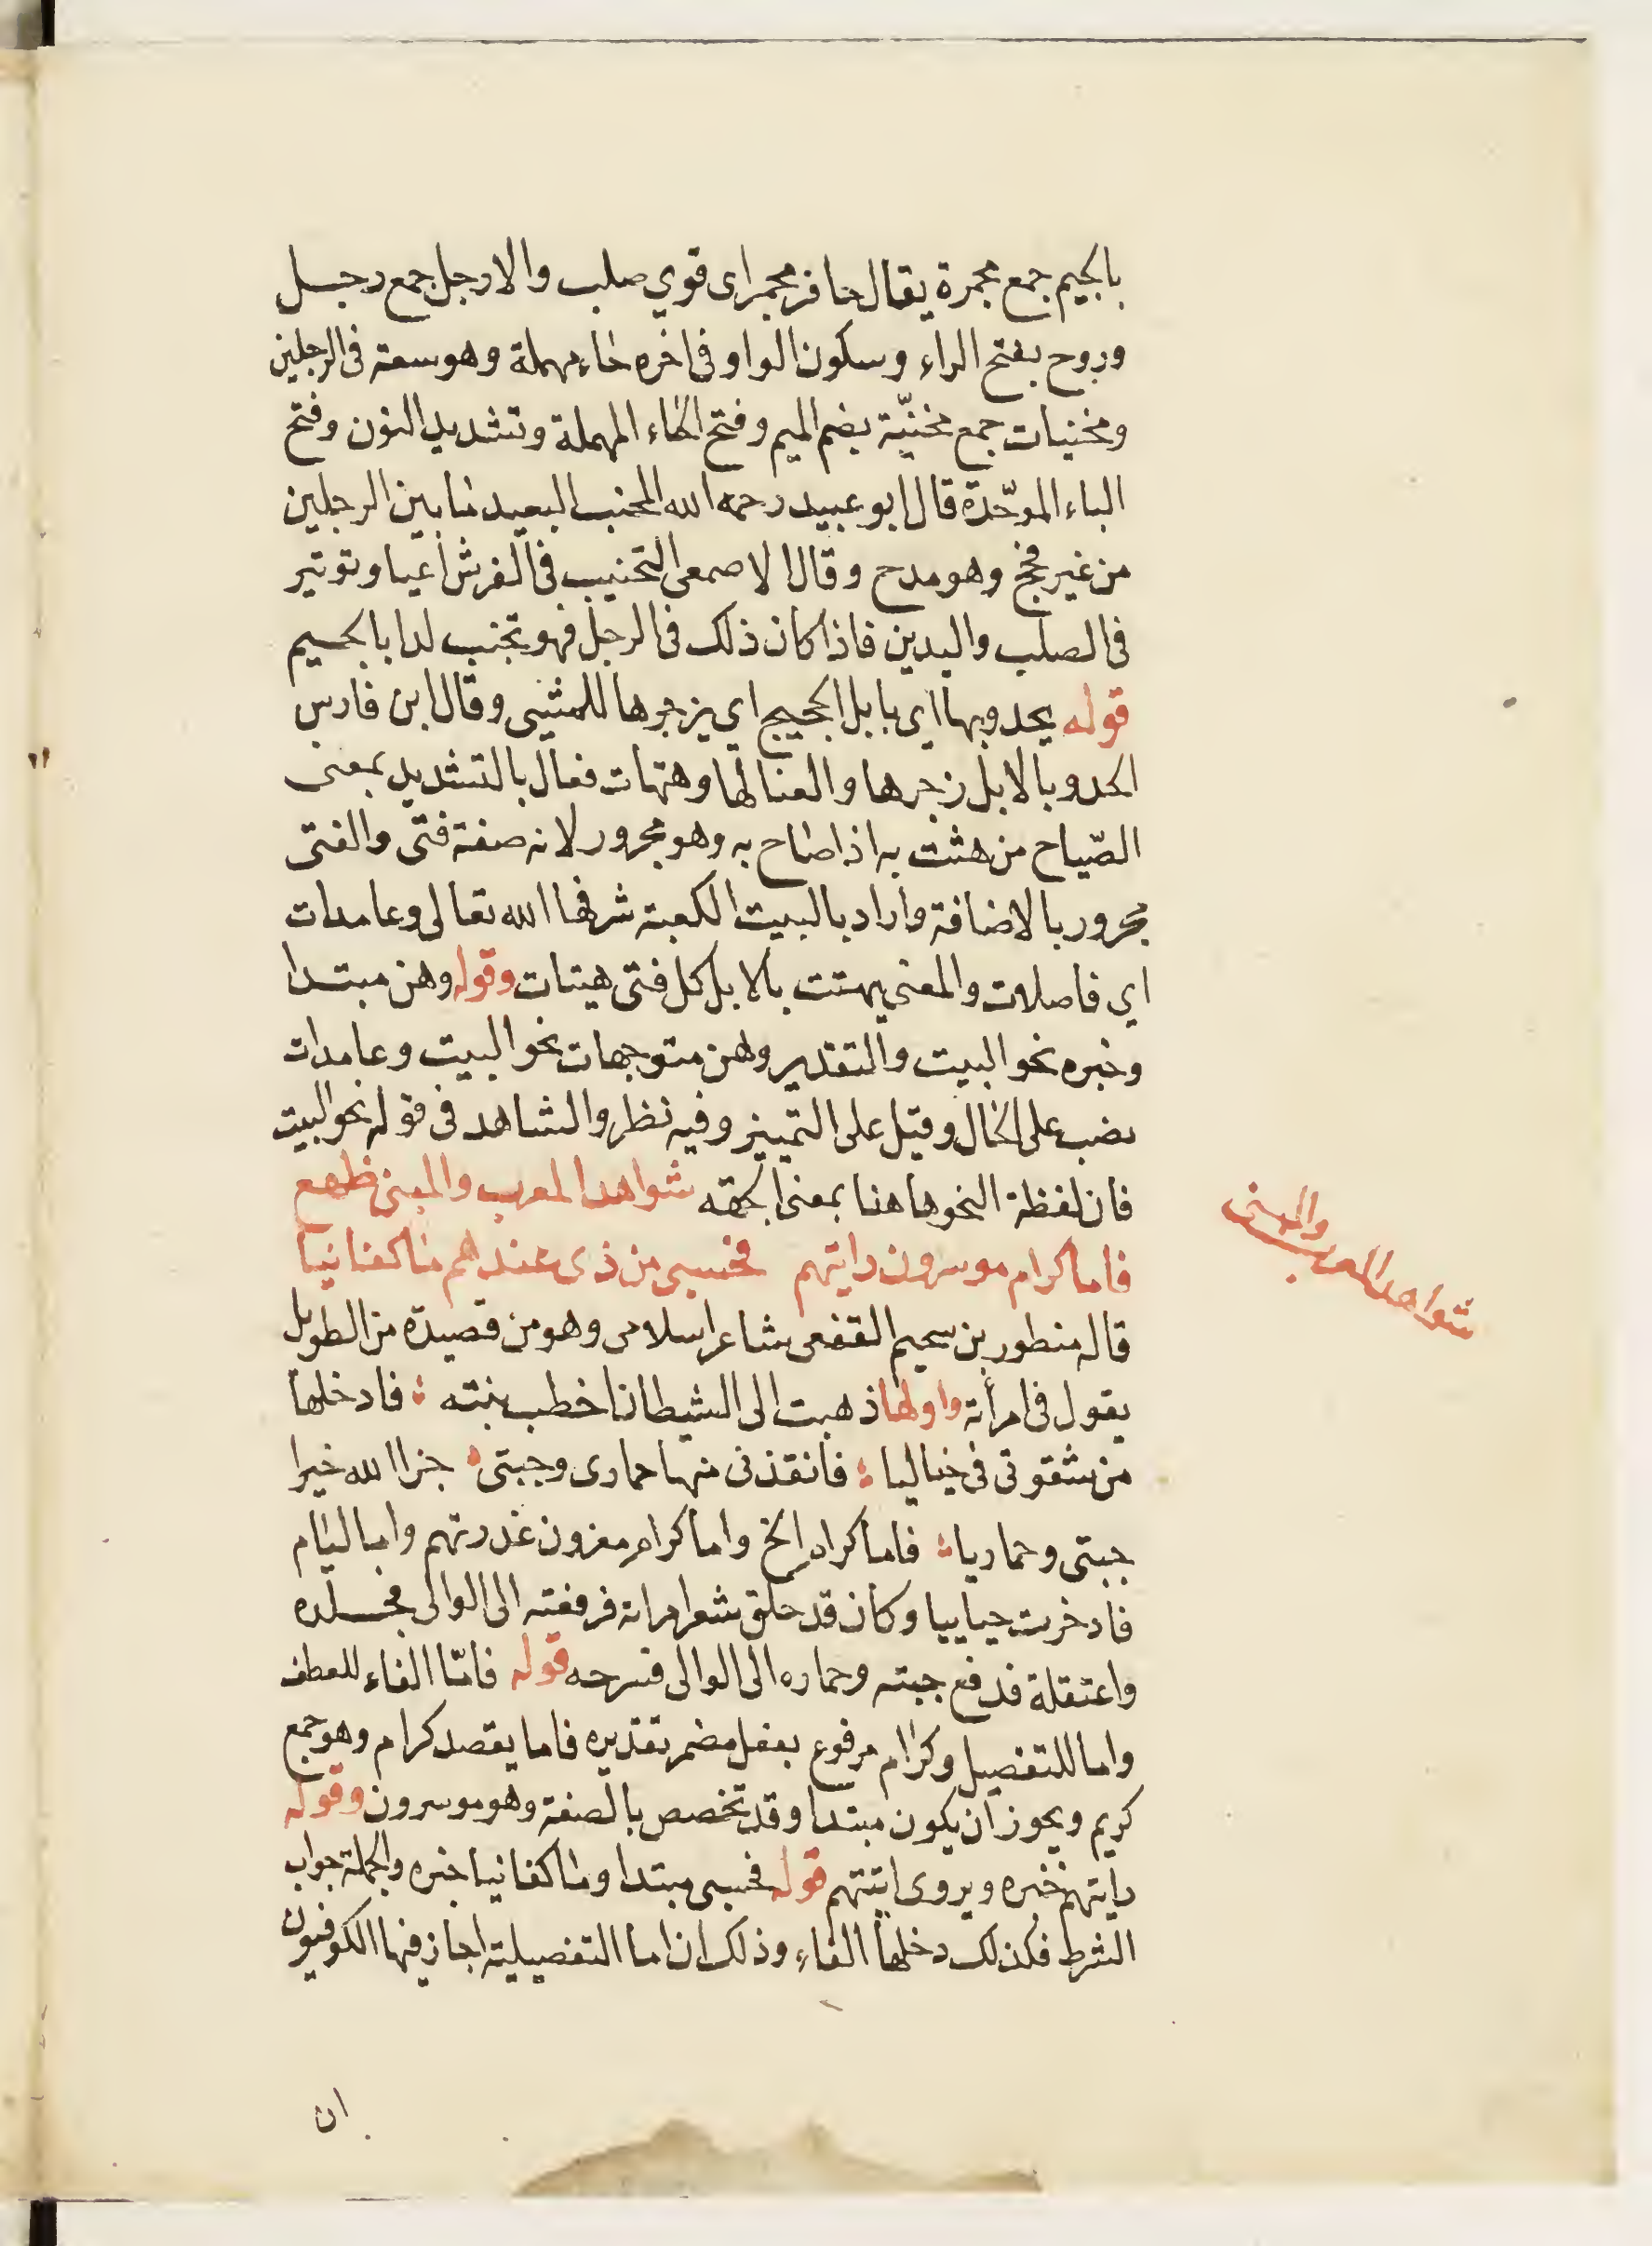 بالجيم جمع مجمرة يقال حافر مجمر اى قوي صلب والارجل جمع رجل
وروح بفتح الراء وسكون الواو فى اخره حاء مهملة وهو سعة فى الرجلين
ومحنبات جمع محنبّة بضم الميم وفتح الحاء المهملة وتشديد النون وفتح
الباء الموحّدة قال ابو عبيد رحمه الله المحنب البعيد ما بين الرجلين
من غير فحج وهو مدح وقال الاصمعى التحنيب فى الفرش اعيا وتوتير
فى الصلب واليدين فاذا كان ذلك فى الرجل فهو تجنب لدا بالجيم
قوله يحدو بها اي بابل الحجيج اي يزجرها للمشى وقال ابن فارس
الحدو بالابل زجرها والغنا لها وهتهات فعال بالتشديد بمعنى
الصّياح من هتت به اذا صاح به وهو مجرور لانه صفة فتى والفتى
مجرور بالاضافة واراد بالبيت الكعبة شرفها الله تعالى وعامدات
اي فاصلات والمعنى يهتت بالابل كل فتى هيتات وقوله وهن مبتدا
وخبره نحو البيت والتقدير وهن متوجهات نحو البيت وعامدات
نصب على الحال وقيل على التمييز وفيه نظر والشاهد فى قوله نحو البيت
فان لفظة النحو هاهنا بمعنى الجهة شواهد المعرب والمبنى ظهع
فاما كرام موسرون رايتهم فحسبى من ذى عندهم ما كفانيا
قاله منطور بن سحيم القفعى شاعر اسلامى وهو من قصيدة من الطويل
يقول فى امرأته واولها ذهبت الى الشيطان اخطب بنته فادخلها
من شقوتى فى خياليا فانقذنى منها حمارى وجبتى جزا الله خيرا
جبتى وحماريا فاما كرام الخ واما كرام معزون عذرتهم واما ليام
فادخرت حياييا وكان قد حلق شعر امراته فرفعته الى الوالى فجلده
واعتقلة فدفع جبته وحماره الى الوالى فسرحه قوله فامّا الفاء للعطف
واما للتفصيل وكرام مرفوع بفعل مضمر تقديره فاما يقصد كرام وهو جمع
كريم ويجوز ان يكون مبتدا وقد تخصص بالصفة وهو موسرون وقوله
رايتهم خبره ويروى اتيتهم قوله فحسبى مبتدا وما كفانيا خبره والجملة جواب
الشرط فلذلك دخلها الفاء وذلك ان اما التفصيلية اجاز فيها الكوفيون
ان
شواهد المعرب
والمبنى